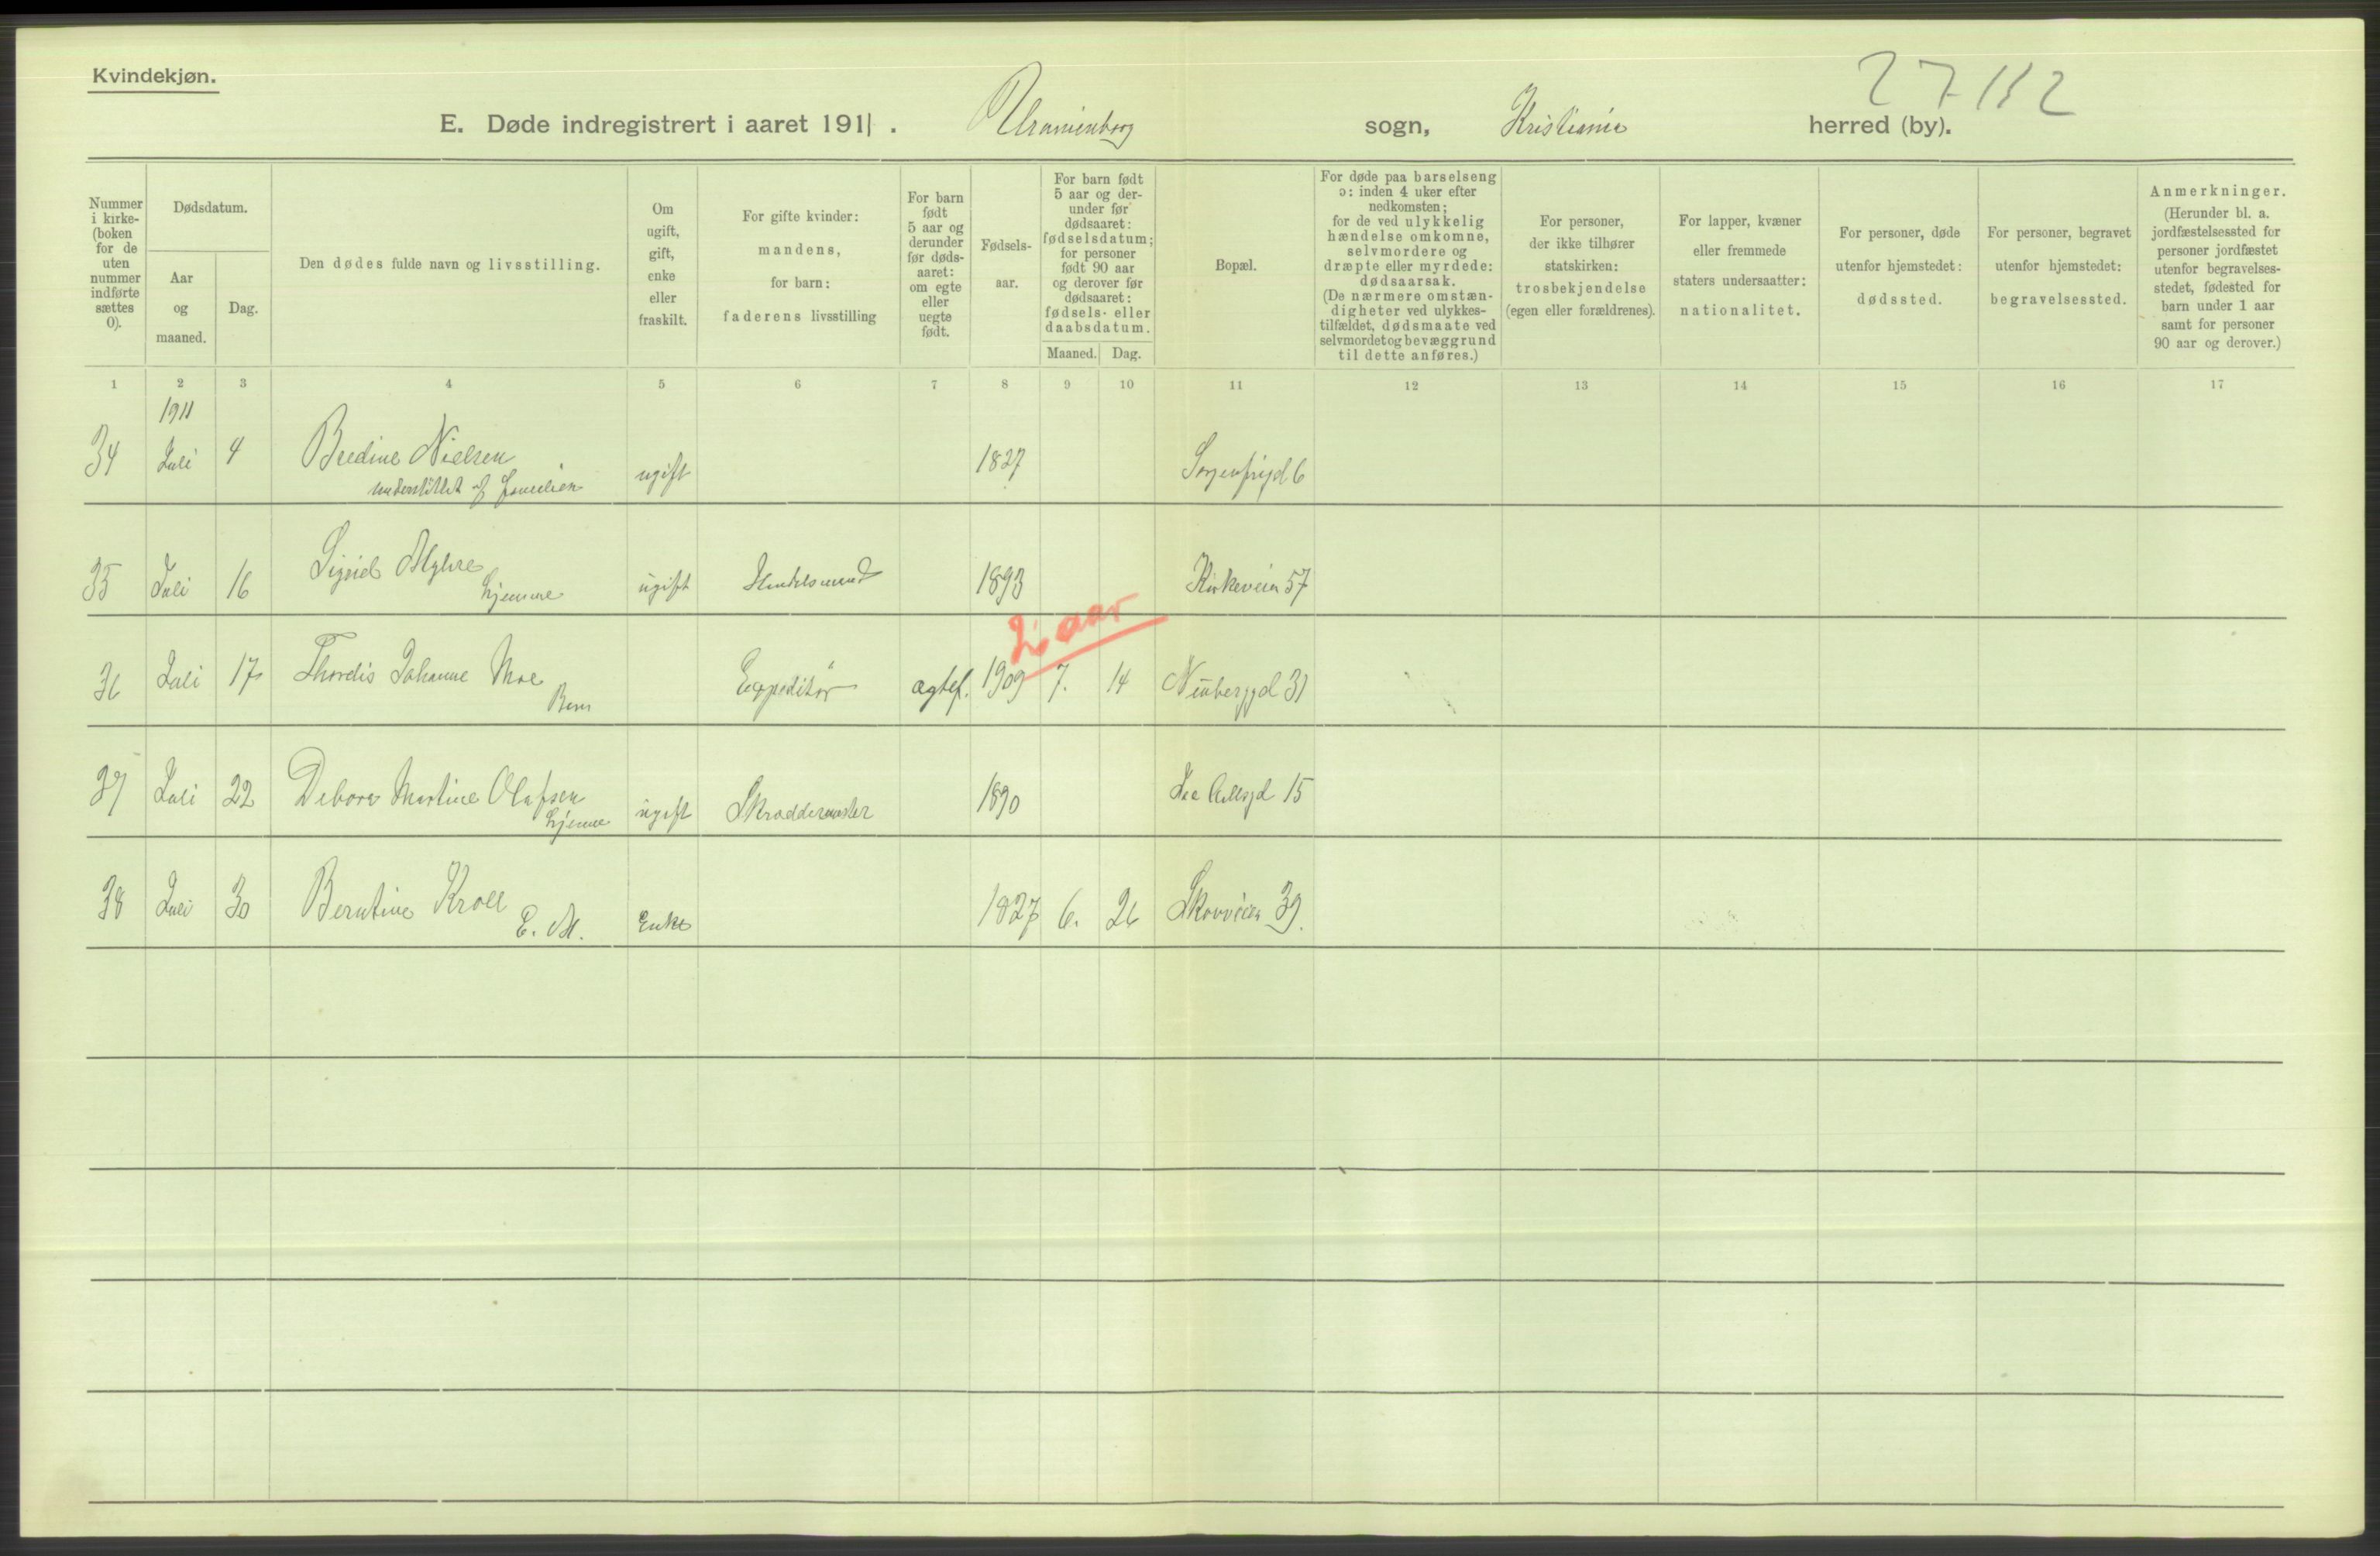 Kvindekjøn.
27 112
E. Døde indregistrert i aaret 1911. Uranienborg sogn, Kristiania herred (by).
Nummer i kirke-
(boken
for de
uten
nummer
indførte
sættes
0).
Dødsdatum.
Aar
og
maaned.
Dag.
Den dødes fulde navn og livsstilling.
Om
ugift,
gift,
enke
eller
fraskilt.
For gifte kvinder:
mandens,
for barn:
faderens livsstilling
For barn
født
5 aar og
derunder
før døds-
aaret:
om egte
eller
uegte
født.
Fødsels-
aar.
For barn født
5 aar og der-
under før
dødsaaret:
fødselsdatum;
for personer
født 90 aar
og derover før
dødsaaret:
fødsels- eller
daabsdatum.
Maaned. Dag.
Bopæl.
For døde paa barselseng
ɔ: inden 4 uker efter
nedkomsten;
for de ved ulykkelig
hændelse omkomne,
selvmordere og
dræpte eller myrdede:
dødsaarsak.
(De nærmere omstæn-
digheter ved ulykkes-
tilfældet, dødsmaate ved
selvmordet og bevæggrund
til dette anføres.)
For personer,
der ikke tilhører
statskirken:
trosbekjendelse
(egen eller forældrenes).
For lapper, kvæner
eller fremmede
staters undersaatter:
nationalitet.
For personer, døde
utenfor hjemstedet:
dødssted.
For personer, begravet
utenfor hjemstedet:
begravelsessted.
Anmerkninger.
(Herunder bl. a.
jordfæstelsessted for
personer jordfæstet
utenfor begravelses-
stedet, fødested for
barn under 1 aar
samt for personer
90 aar og derover.)
1 2 3 4 5 6 7 8 9 10 11 12 13 14 15 16 17
1911
34 Juli 4 Bredine Nielsen ugift 1827 Sorgenfrigd 6
understøttet af familien
35 Juli 16 Sigrid Myhre ugift Handelsmand 1893 Kirkeveien 57
hjemme
2 aar
36 Juli 17 Thordis Johanne Moe Expeditør ægtef. 1909 7. 14 Neuberggd 31
Barn
37 Juli 22 Debora Martine Olafsen ugift Skræddermester 1890 Jac Aallsgd 15
hjemme
38 Juli 30 Berntine Kroll Enke 1827 6. 26 Skovveien 39.
E. M.